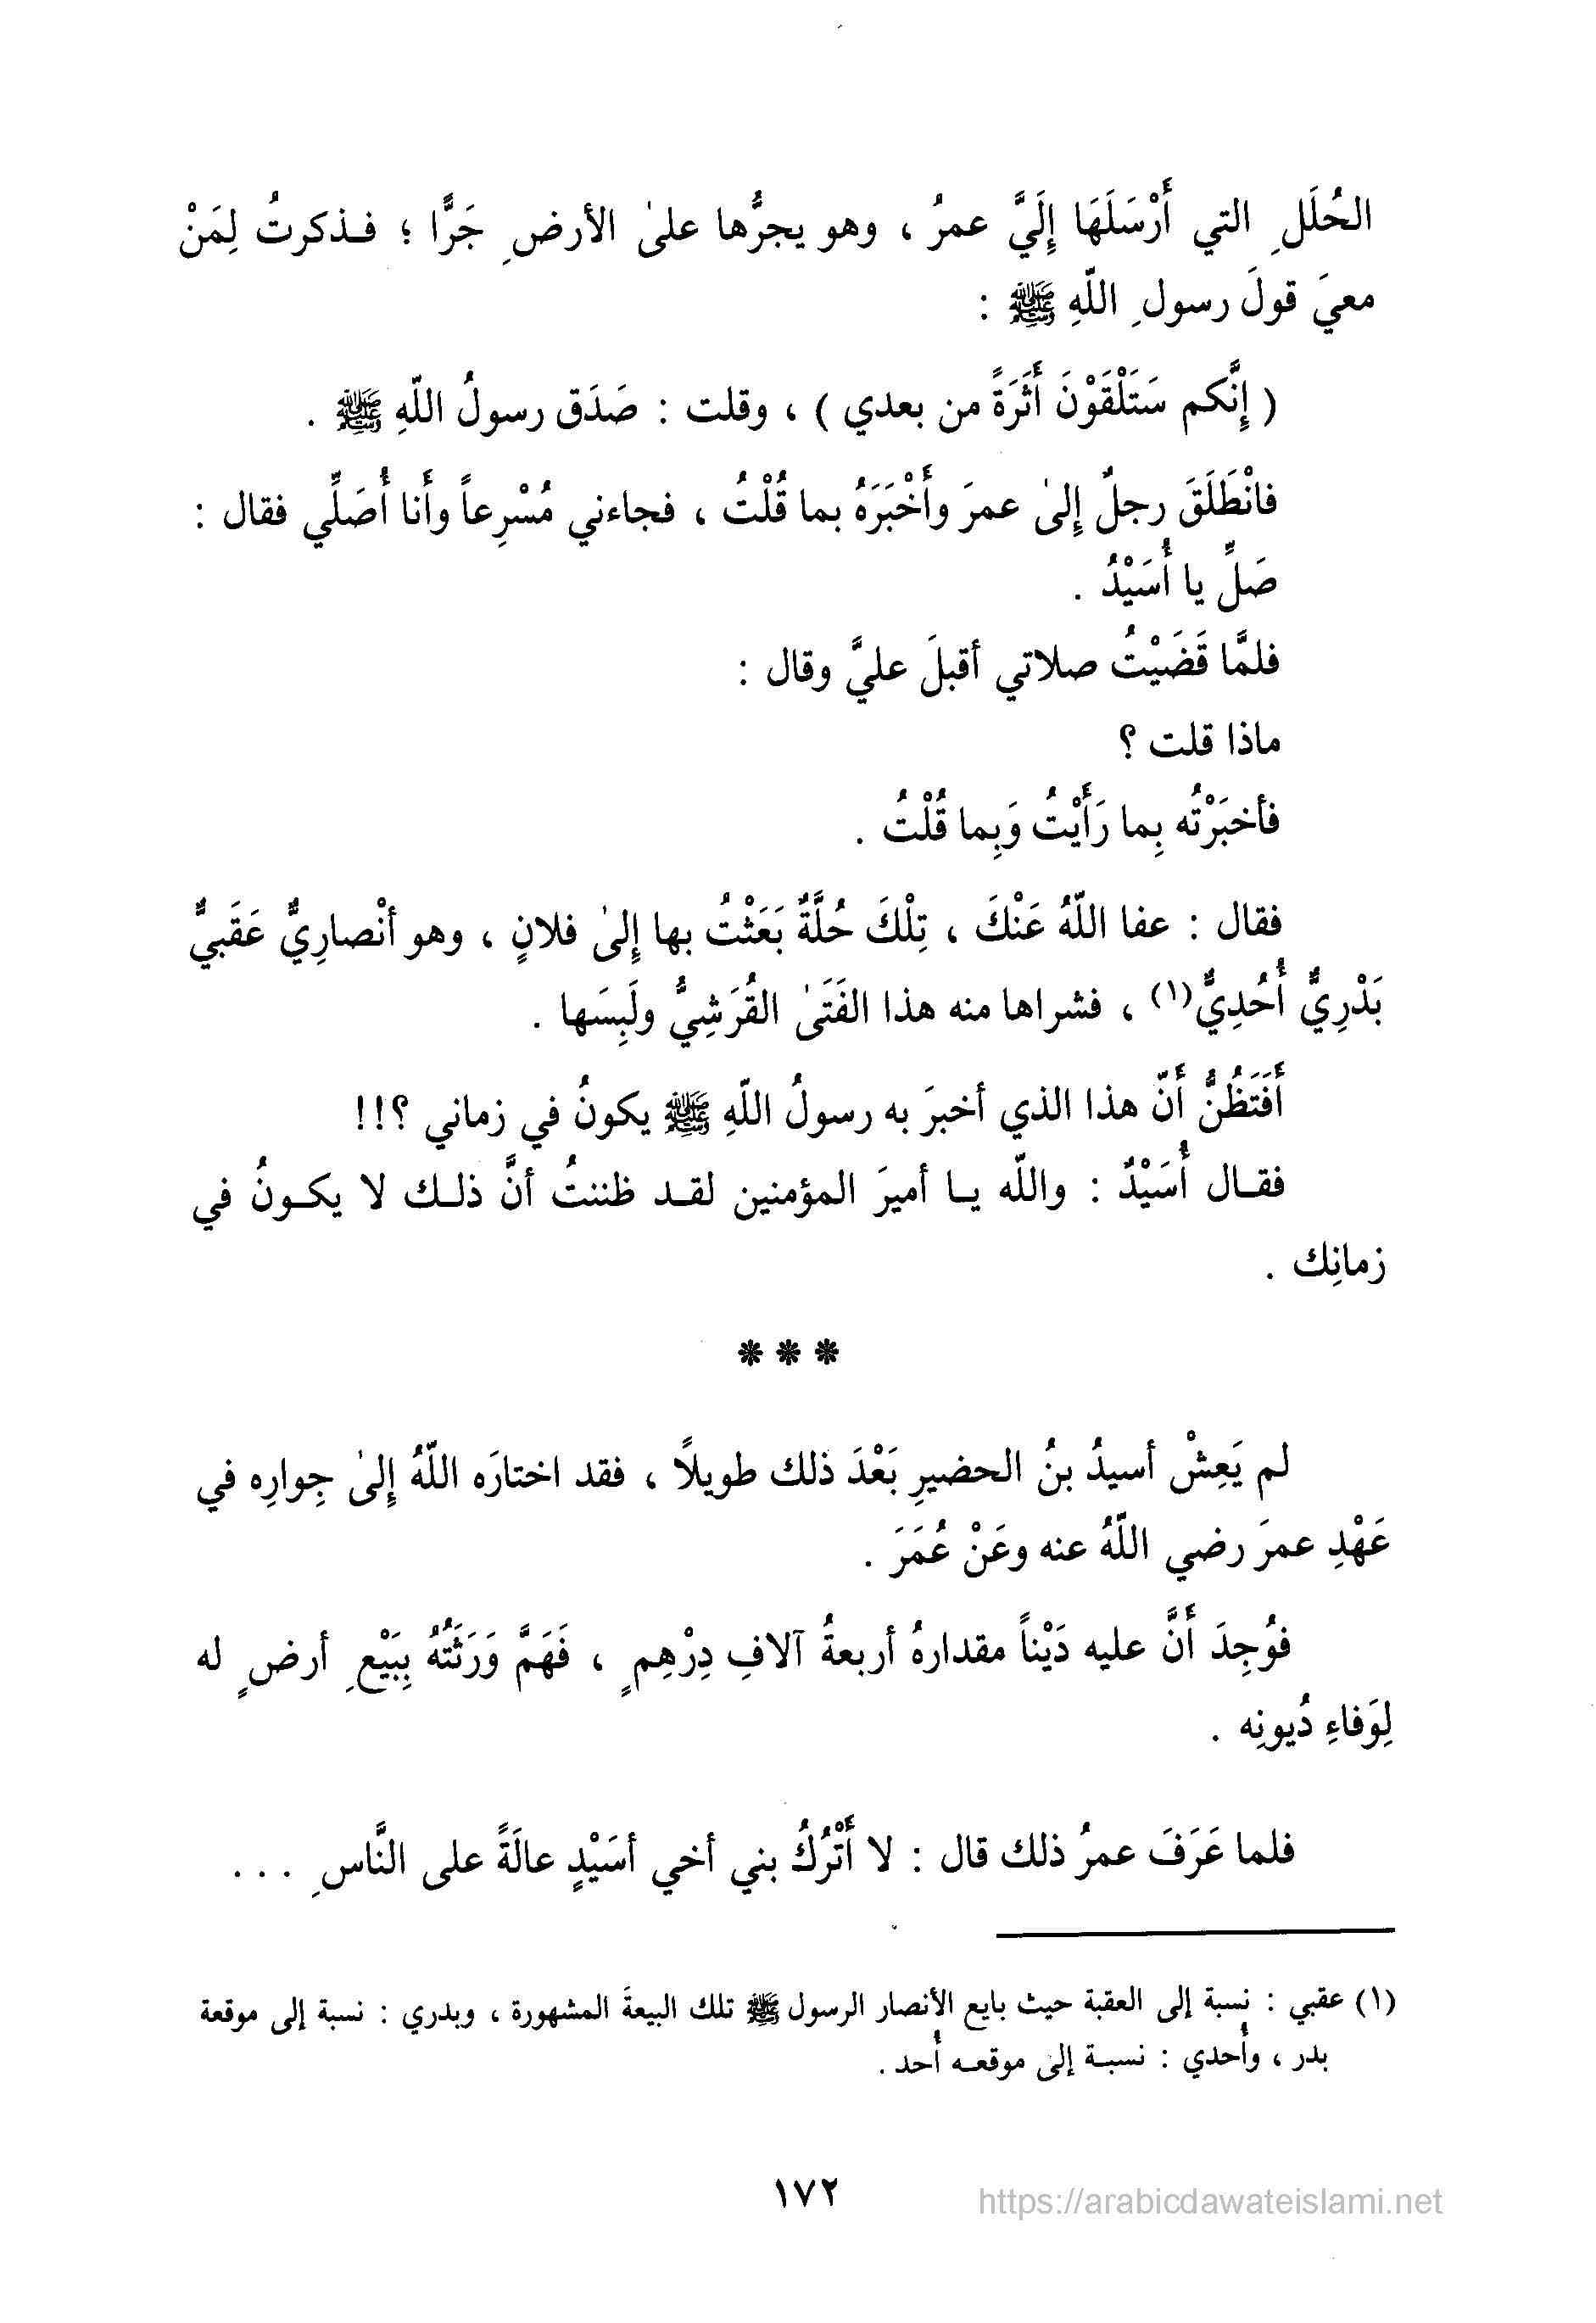 الحُلَلِ التي أَرْسَلَهَا إِلَيَّ عمرُ ، وهو يجرُّها علىٰ الأرضِ جَرًّا ؛ فـذكرتُ لِمَنْ
معيَ قولَ رسولِ اللّهِ ﷺ :
( إِنَّكم سَتَلْقَوْنَ أَثَرَةً من بعدي ) ، وقلت : صَدَق رسولُ اللّهِ ﷺ .
فانْطَلَقَ رجلٌ إِلىٰ عمرَ وأَخْبَرَهُ بما قُلْتُ ، فجاءني مُسْرِعاً وأَنا أُصَلِّي فقال :
صَلِّ يا أُسَيْدُ .
فلمَّا قَضَيْتُ صلاتي أقبلَ عليَّ وقال :
ماذا قلت ؟
فأخبَرْتُه بِما رَأَيْتُ وَبِما قُلْتُ .
فقال : عفا اللّهُ عَنْكَ ، تِلْكَ حُلَّةٌ بَعَثْتُ بها إِلىٰ فلانٍ ، وهو أنْصارِيٌّ عَقَبيٌّ
بَدْرِيٌّ أُحُدِيٌّ(١) ، فشراها منه هذا الفَتَىٰ القُرَشِيُّ ولَبِسَها .
أَفَتَظُنُّ أَنّ هذا الذي أخبرَ به رسولُ اللّهِ ﷺ يكونُ في زماني ؟!!
فقـال أُسَيْدٌ : واللّه يـا أميرَ المؤمنين لقـد ظننتُ أنَّ ذلـك لا يكـونُ في
زمانِك .
* * *
لم يَعِشْ أسيدُ بنُ الحضيرِ بَعْدَ ذلك طويلاً ، فقد اختارَه اللّهُ إِلىٰ جِوارِه في
عَهْدِ عمرَ رضي اللّهُ عنه وعَنْ عُمَرَ .
فوُجِدَ أَنَّ عليه دَيْناً مقدارهُ أربعةُ آلافِ دِرْهِمٍ ، فَهَمَّ وَرَثَتُهُ بِبَيْعِ أرضٍ له
لِوَفاءِ دُيونِه .
فلما عَرَفَ عمرُ ذلك قال : لا أَتْرُكُ بني أخي أسَيْدٍ عالَةً على النَّاسِ ...
(١) عقبي : نسبة إلى العقبة حيث بايع الأنصار الرسول ﷺ تلك البيعةَ المشهورة ، وبدري : نسبة إلى موقعة
بدر ، وأُحدي : نسبـة إلى موقعـه أُحد .
١٧٢
https://arabicdawateislami.net